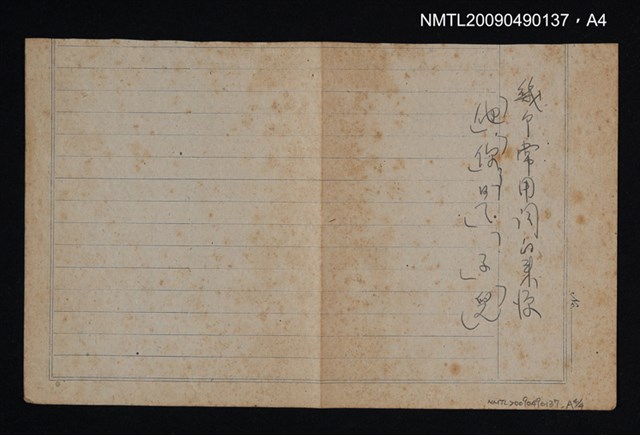 NMTL20090490137，A4
幾个常用詞的来源
「子」「兒」
No
NMTL20090490137-A4/4